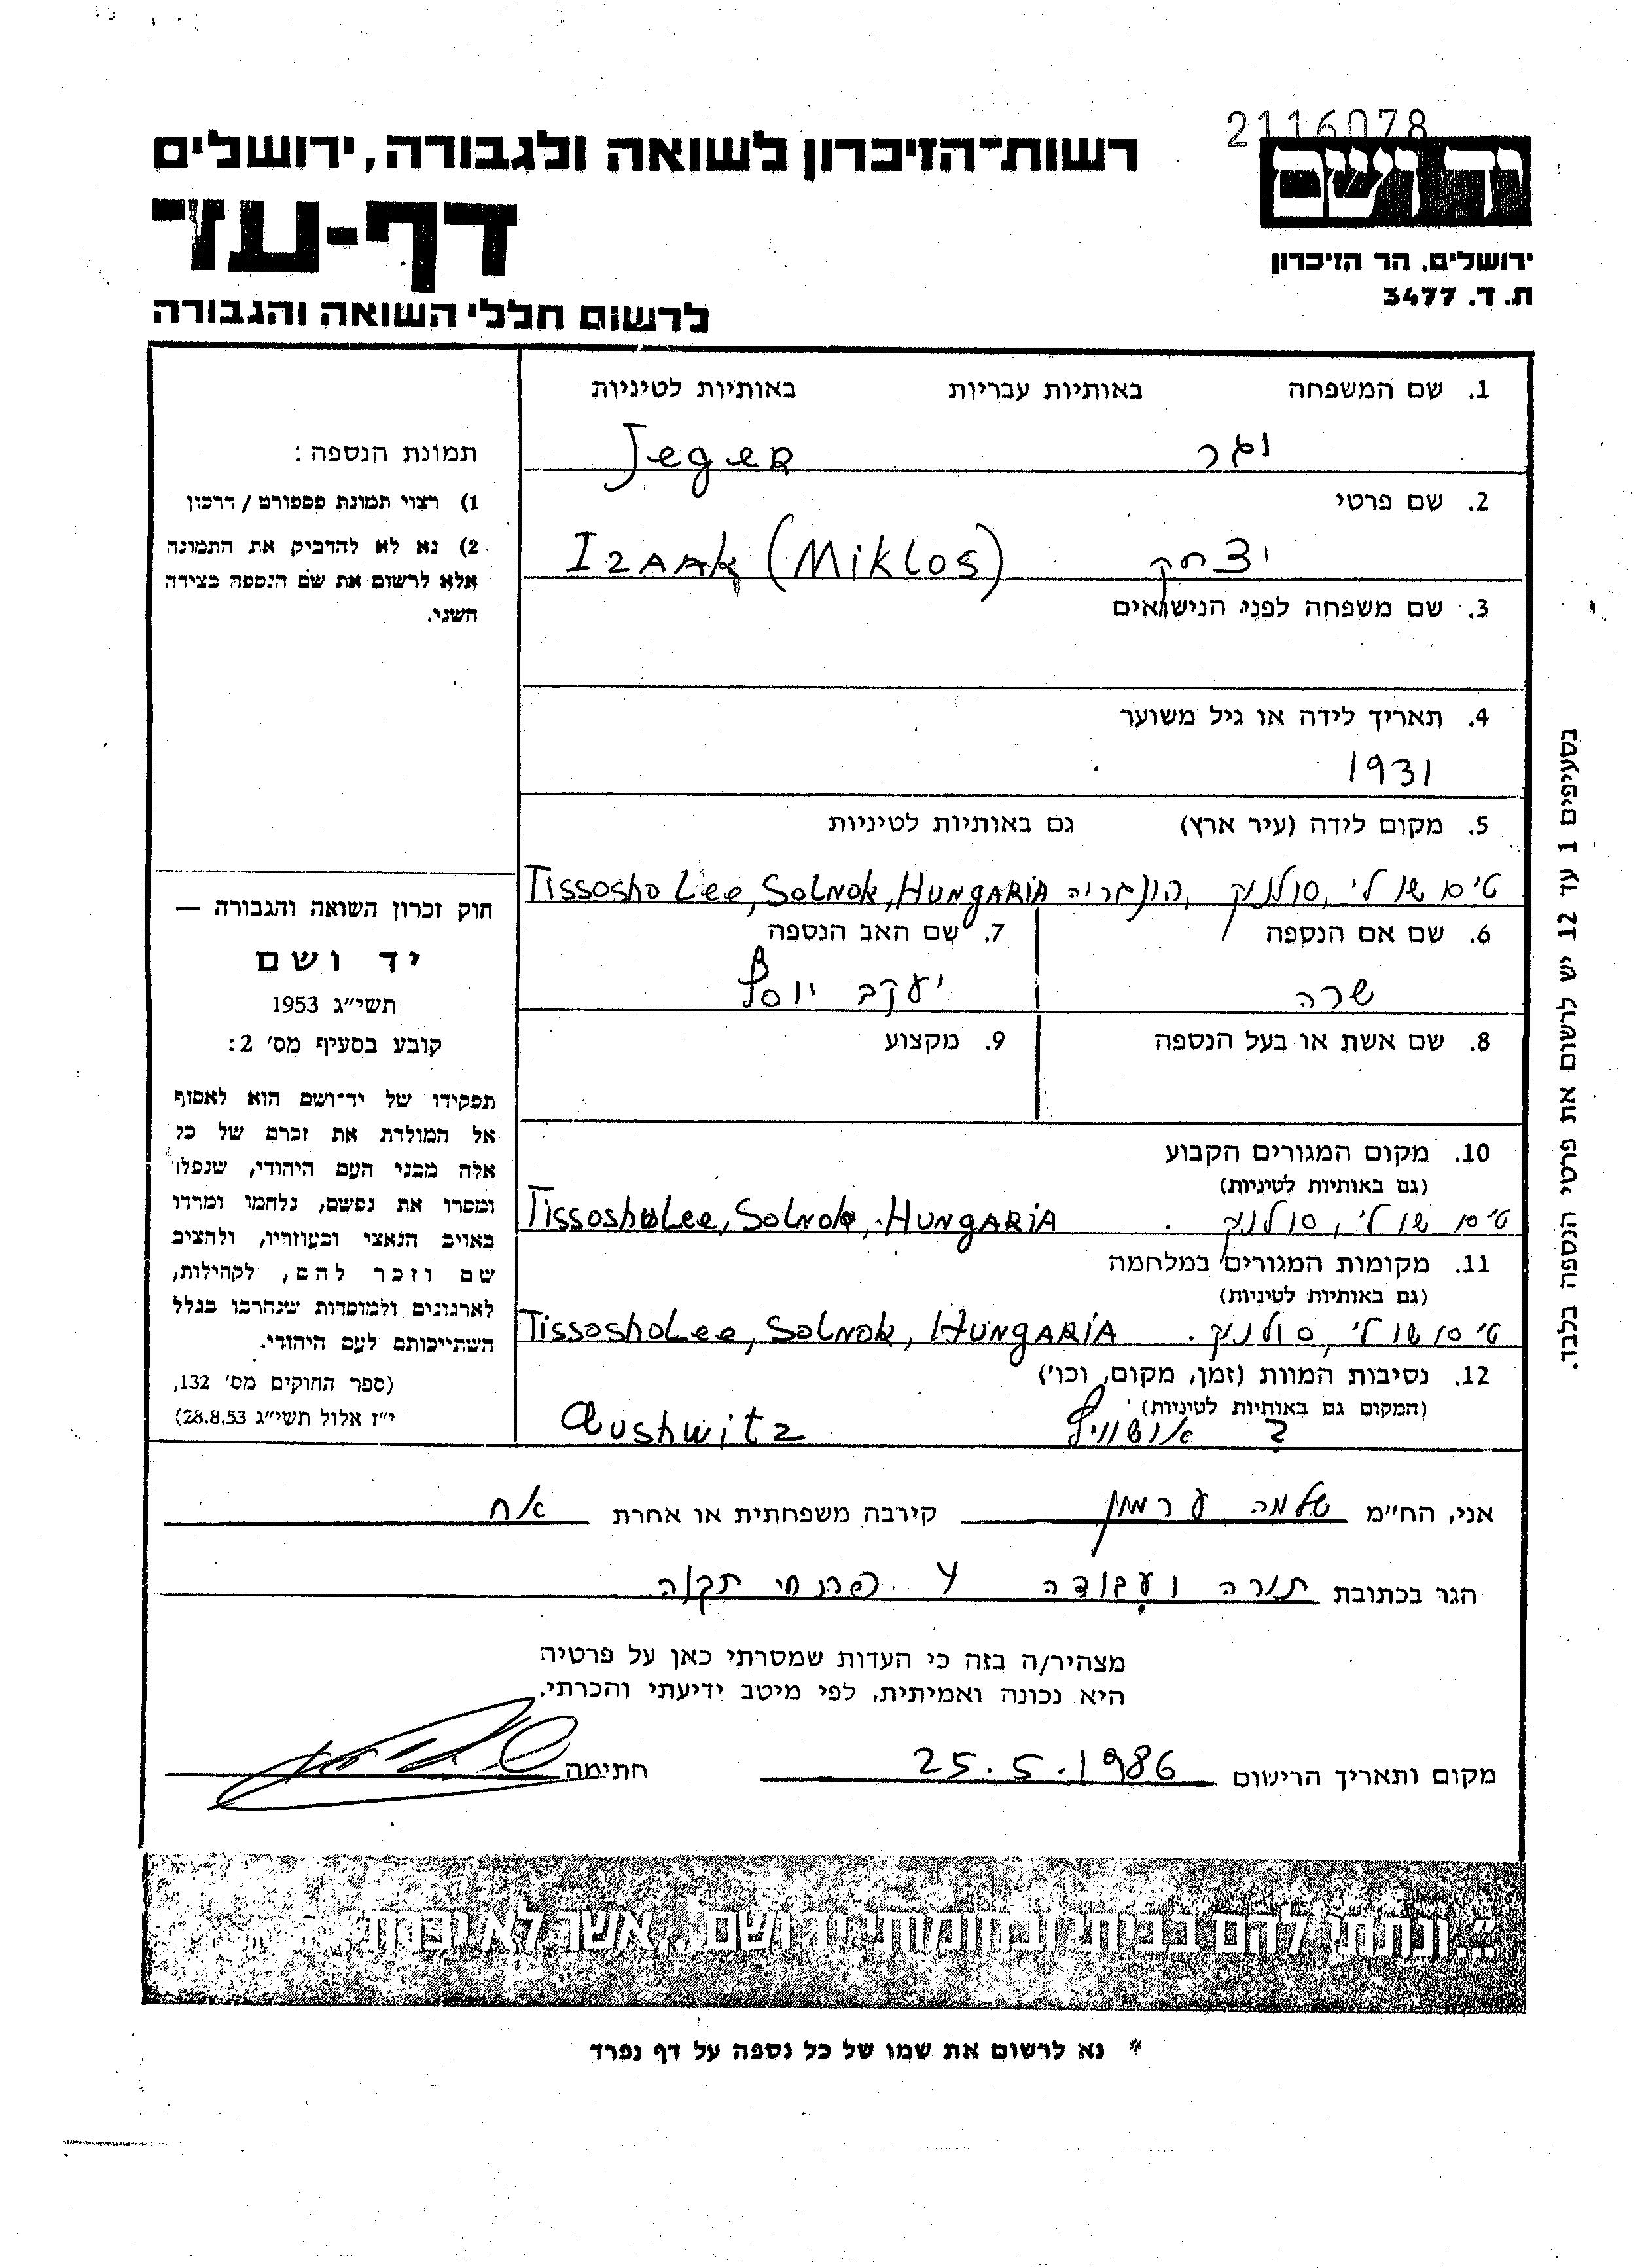 2116078
רשות־הזיכרון לשואה ולגבורה, ירושלים
יד ושם
דף-עד
ירושלים, הר הזיכרון
ת. ד. 3477
לרשום חללי השואה והגבורה
1. שם המשפחה באותיות עבריות באותיות לטיניות
יגר Jeger
2. שם פרטי
יצחק Izaak (Miklos)
3. שם משפחה לפני הנישואים
4. תאריך לידה או גיל משוער
1931
5. מקום לידה (עיר ארץ) גם באותיות לטיניות
טיסו שולי, סולנוק, הונגריה Tissosho Lee, Solnok, HUNGARIA
6. שם אם הנספה 7. שם האב הנספה
שרה יעקב יוסף
8. שם אשת או בעל הנספה 9. מקצוע
10. מקום המגורים הקבוע
(גם באותיות לטיניות)
טיסו שולי, סולנוק. TissoshoLee, Solnok, HUNGARIA
11. מקומות המגורים במלחמה
(גם באותיות לטיניות)
טיסו שולי, סולנוק. TissoshoLee, Solnok, HUNGARIA
12. נסיבות המוות (זמן, מקום, וכו')
(המקום גם באותיות לטיניות)
ב אושוויץ Aushwitz
תמונת הנספה:
1) רצוי תמונת פספורט / דרכון
2) נא לא להדביק את התמונה
אלא לרשום את שם הנספה בצידה
השני.
חוק זכרון השואה והגבורה —
יד ושם
תשי״ג 1953
קובע בסעיף מס' 2:
תפקידו של יד־ושם הוא לאסוף
אל המולדת את זכרם של כל
אלה מבני העם היהודי, שנפלו
ומסרו את נפשם, נלחמו ומרדו
באויב הנאצי ובעוזריו, ולהציב
שם וזכר להם, לקהילות,
לארגונים ולמוסדות שנהרבו בגלל
השתייכותם לעם היהודי.
(ספר החוקים מס' 132,
י״ז אלול תשי״ג 28.8.53)
בסעיפים 1 עד 12 יש לרשום את פרטי הנספה בלבד.
אני, הח״מ שלמה ערמון קירבה משפחתית או אחרת אח
הגר בכתובת תורה ועבודה 4 פתח תקוה
מצהיר/ה בזה כי העדות שמסרתי כאן על פרטיה
היא נכונה ואמיתית, לפי מיטב ידיעתי והכרתי.
מקום ותאריך הרישום 25.5.1986 חתימה
״...ונתתי להם בביתי ובחומותי יד ושם...אשר לא יכרת״
* נא לרשום את שמו של כל נספה על דף נפרד